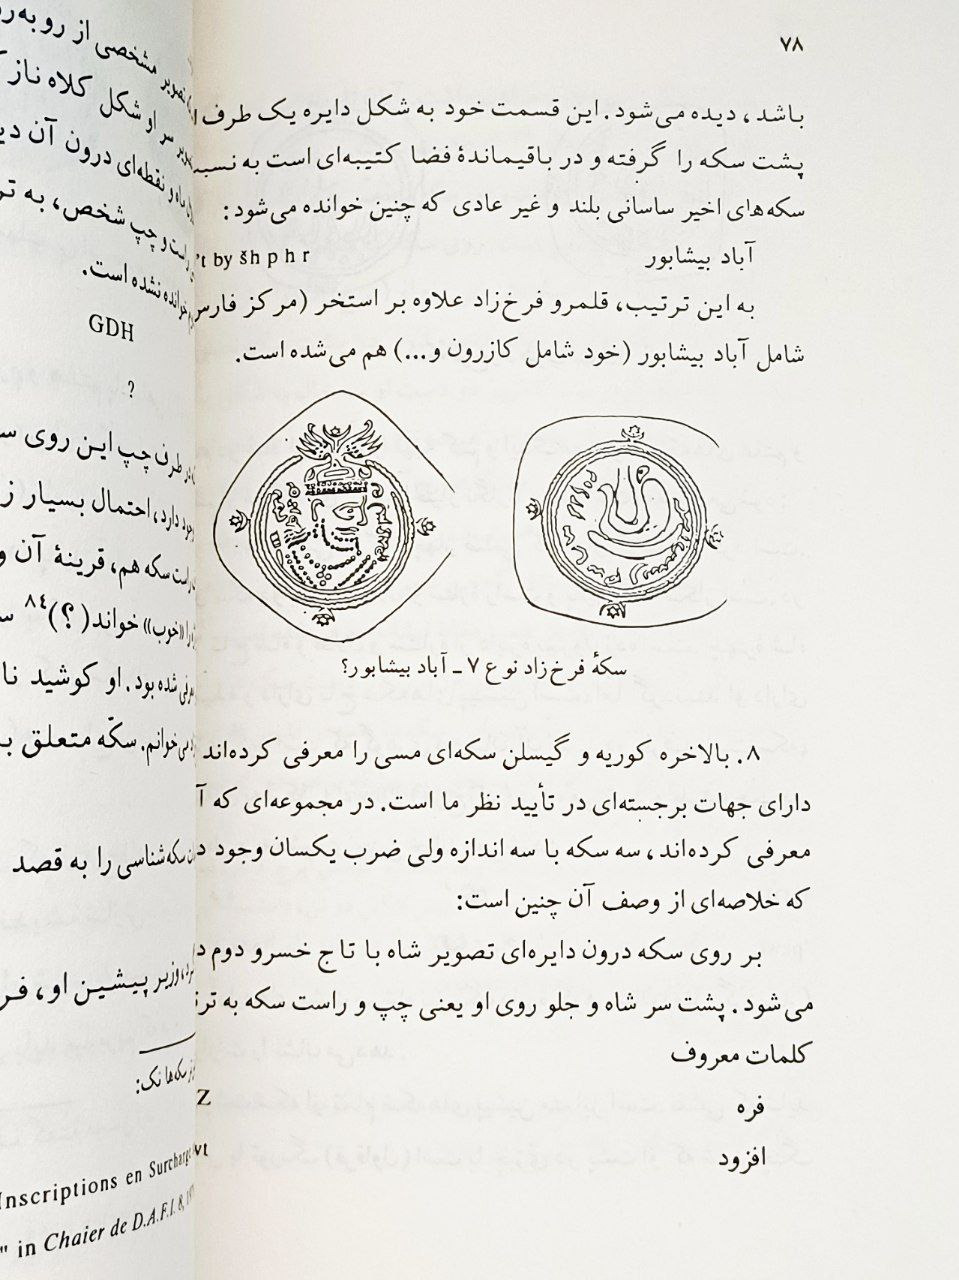 ۷۸
باشد، دیده می‌شود. این قسمت خود به شکل دایره یک طرف
پشت سکه را گرفته و در باقیماندهٔ فضا کتیبه‌ای است به
سکه‌های اخیر ساسانی بلند و غیر عادی که چنین خوانده می‌شود:
آباد بیشابور 't by šh p h r
به این ترتیب، قلمرو فرخ‌زاد علاوه بر استخر (مرکز فارس
شامل آباد بیشابور (خود شامل کازرون و...) هم می‌شده است.
سکهٔ فرخ‌زاد نوع ۷ ـ آباد بیشابور؟
۸. بالاخره کوریه و گیسلن سکه‌ای مسی را معرفی کرده‌اند
دارای جهات برجسته‌ای در تأیید نظر ما است. در مجموعه‌ای که آ
معرفی کرده‌اند، سه سکه با سه اندازه ولی ضرب یکسان وجود د
که خلاصه‌ای از وصف آن چنین است:
بر روی سکه درون دایره‌ای تصویر شاه با تاج خسرو دوم د
می‌شود. پشت سر شاه و جلو روی او یعنی چپ و راست سکه به
کلمات معروف
فره Z
افزود wt
مشخصی از روبه‌رو
سر او شکل کلاه
و نقطه‌ای درون آن
راست و چپ شخص، به
خوانده نشده است.
GDH
?
در طرف چپ این روی
وجود دارد، احتمال بسیار
سکه هم، قرینهٔ آن و
را «خوب» خواند(؟)۸۴
شده بود. او کوشید
می‌خوانم. سکّه متعلق
سکه‌شناسی را به قصد
وزیر پیشین او،
سکه‌ها نک:
Inscriptions en
" in Chaier de D.A.F.I. 8,